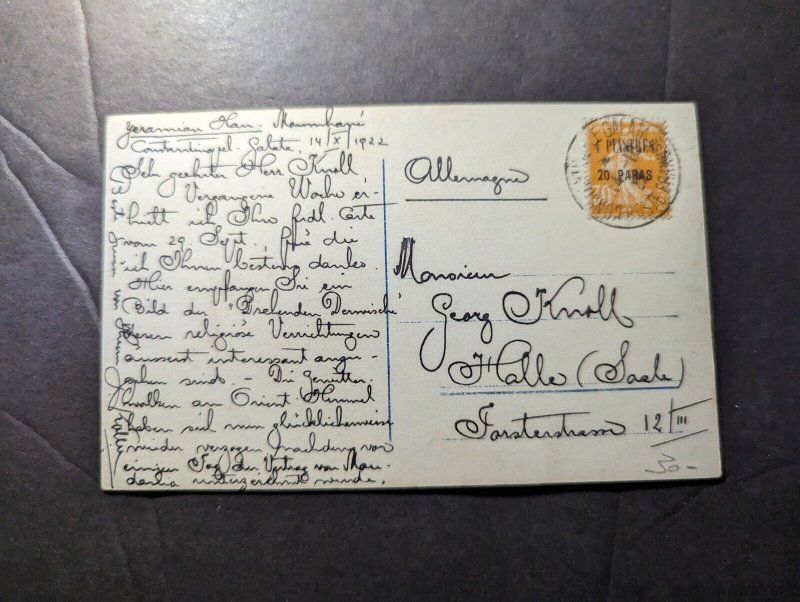 Yeramian Han. Moumhané
Constantinopel-Galata, 14/X/1922
Sehr geehrter Herr Knoll
Vergangene Woche er-
hielt ich Ihre frdl. Carte
vom 29. Sept., für die
ich Ihnen bestens danke.
Hier empfangen Sie ein
Bild der "Drehenden Dermische
deren religiöse Verrichtungen
äussert interessant anzu-
sehen sind. - Die Gewitter-
wolken am Orient-Himmel
haben sich nun glücklicherweise
wieder verzogen nachdem vor
einigen Tag. der Vertrag von Mou-
dania unterzeichnet wurde.
Allemagne
4 PIASTRES
20 PARAS
Monsieur
Georg Knoll
Halle (Saale)
Forsterstrasse 12/III
30-